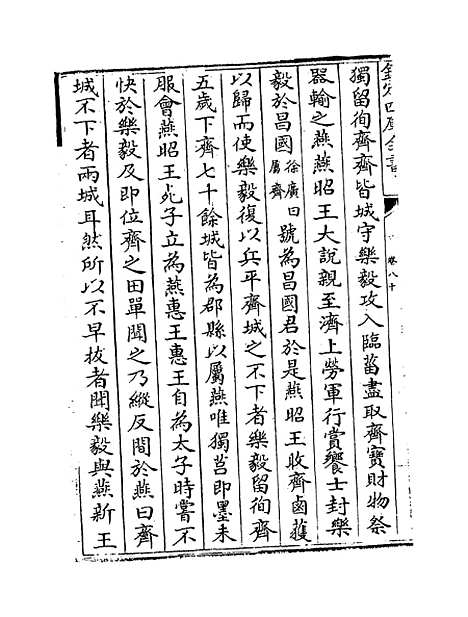 欽定四庫全書
卷八十
獨留徇齊齊皆城守樂毅攻入臨菑盡取齊寶財物祭
器輸之燕燕昭王大說親至濟上勞軍行賞饗士封樂
毅於昌國徐廣曰屬齊號為昌國君於是燕昭王收齊鹵獲
以歸而使樂毅復以兵平齊城之不下者樂毅留徇齊
五歲下齊七十餘城皆為郡縣以屬燕唯獨莒即墨未
服會燕昭王死子立為燕惠王惠王自為太子時嘗不
快於樂毅及即位齊之田單聞之乃縱反間於燕曰齊
城不下者兩城耳然所以不早拔者聞樂毅與燕新王